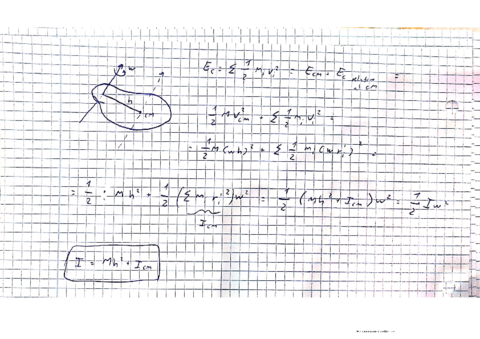 E_c = Σ 1/2 m_i v_i² = E_cm + E_c relativa al CM =
ω
h
CM
1/2 M v_cm² + Σ 1/2 m_i v_i² =
= 1/2 M (ωh)² + Σ 1/2 m_i (ω r_i)² =
= 1/2 · Mh² + 1/2 (Σ m_i r_i²) ω² = 1/2 (Mh² + I_cm) ω² = 1/2 I ω²
I_cm
I = Mh² + I_cm